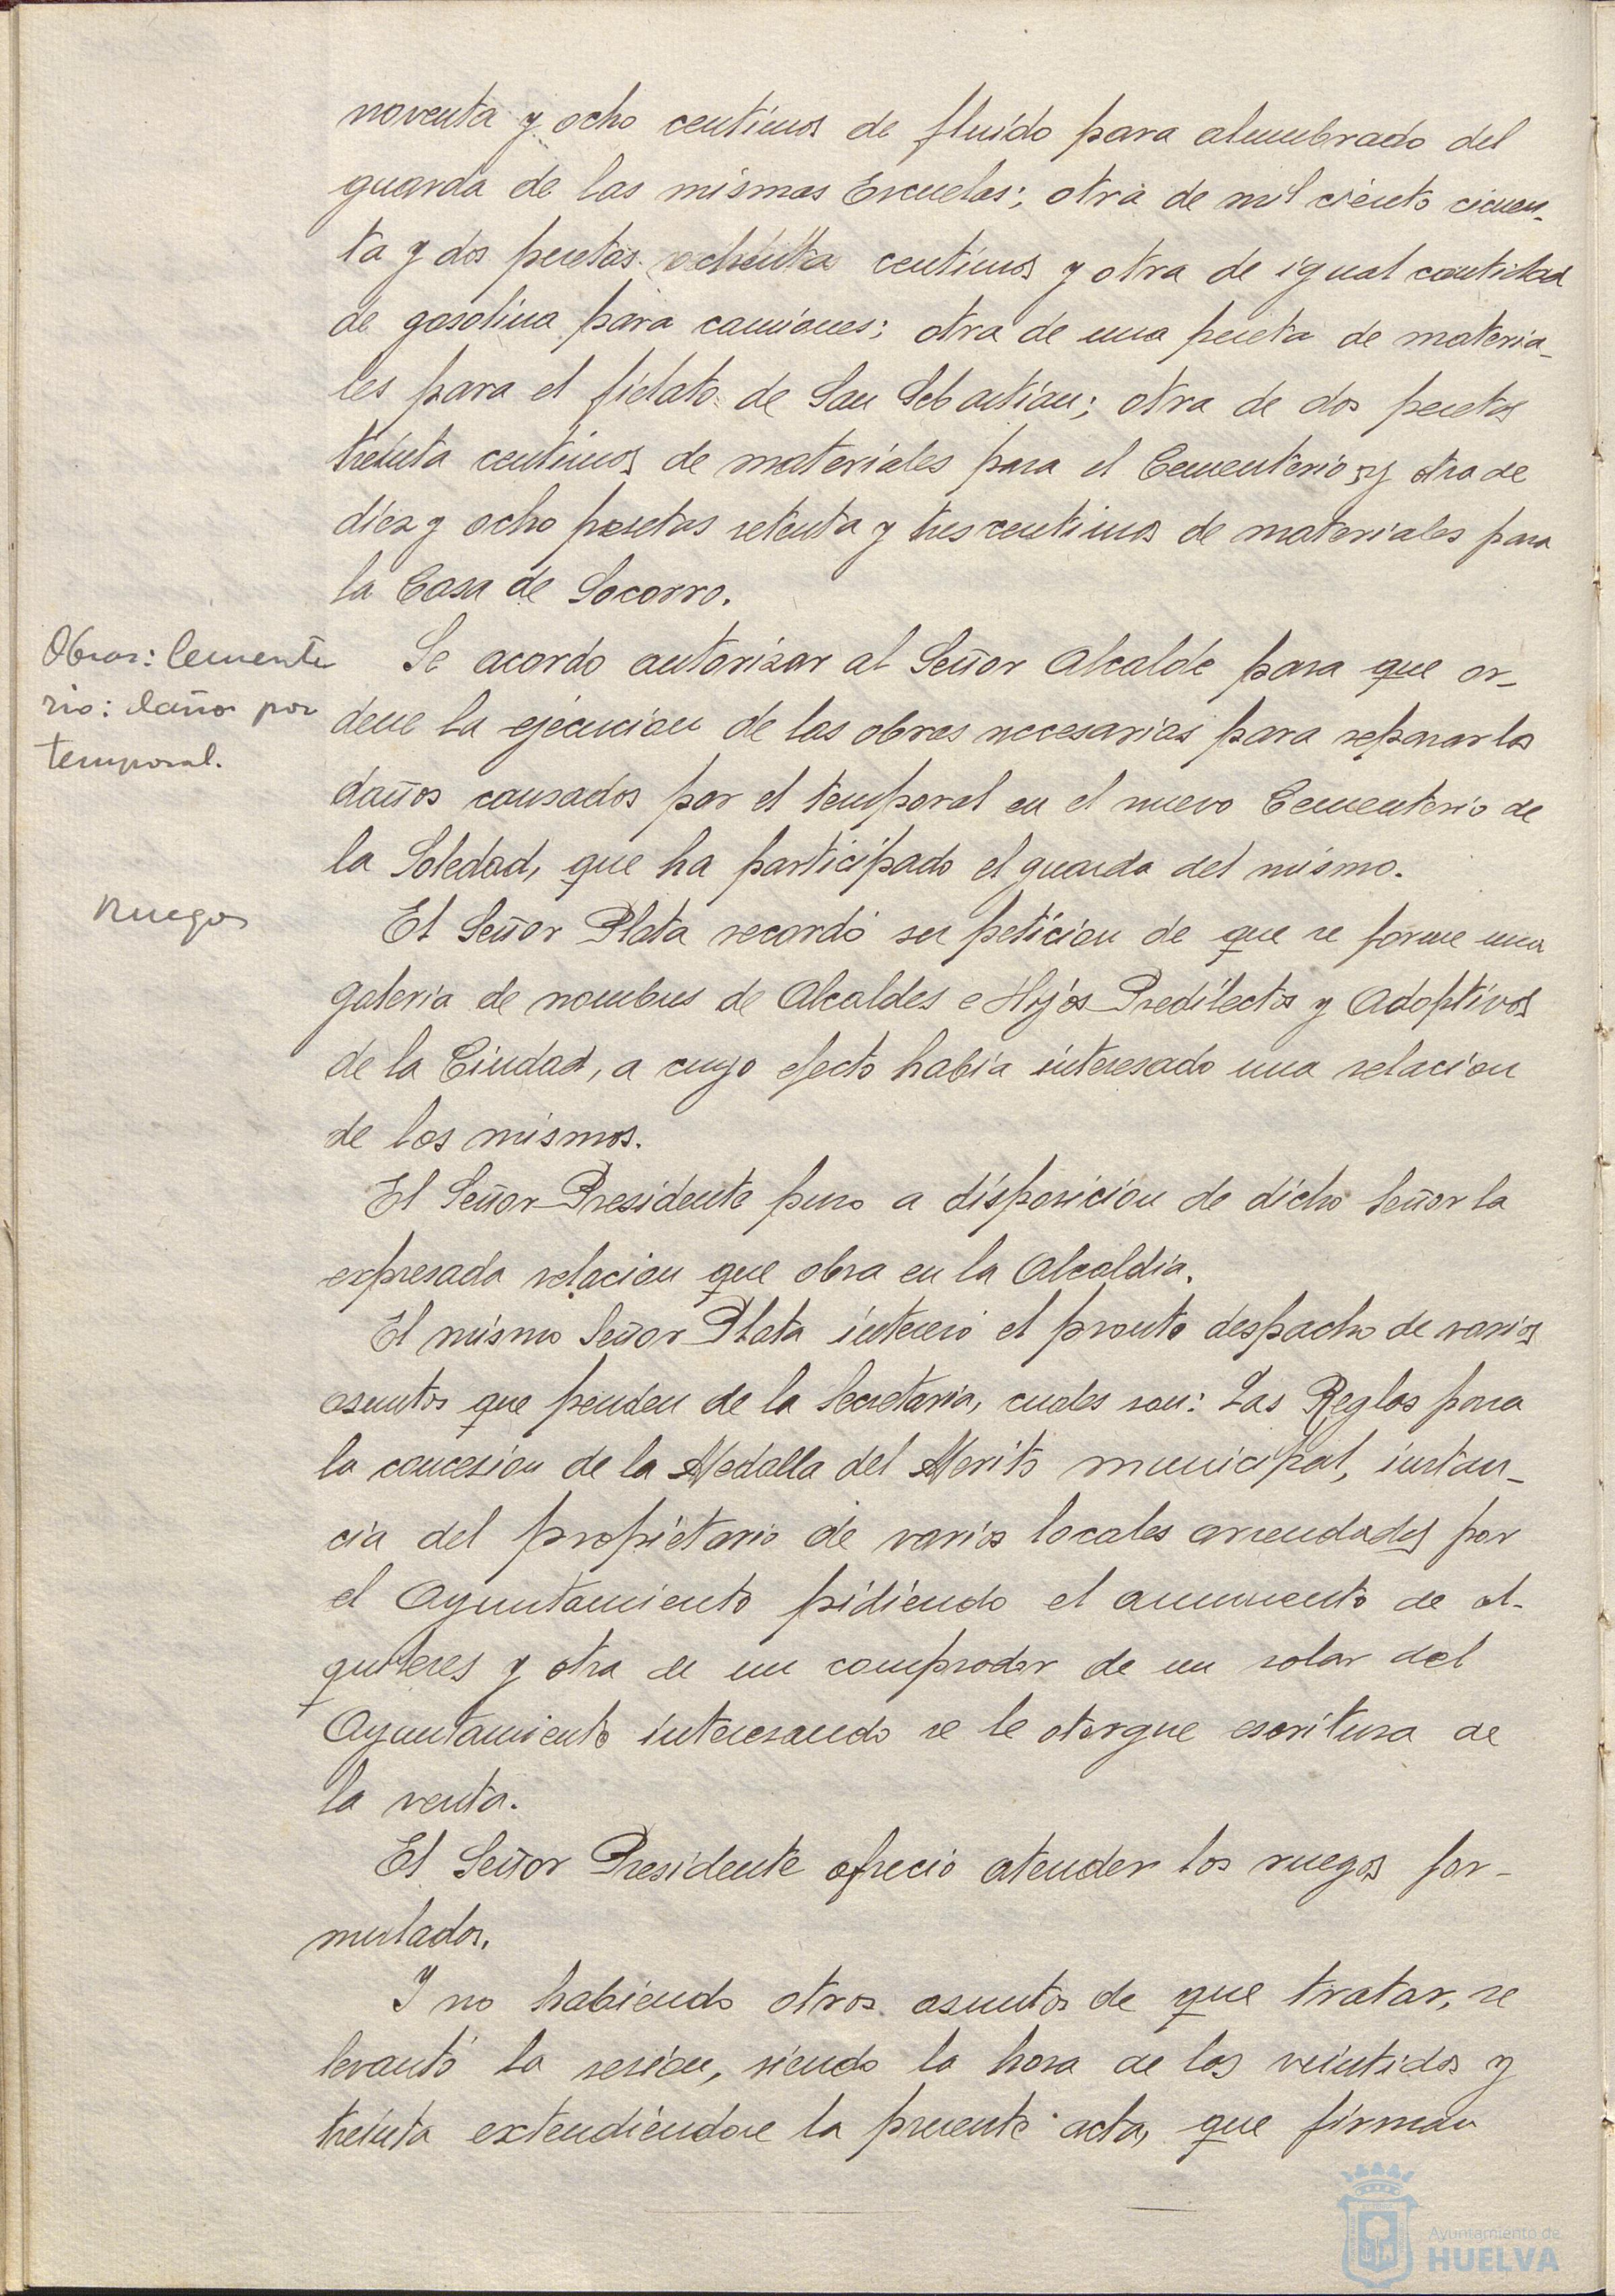 noventa y ocho centimos de fluido para alumbrado del
guarda de las mismas Escuelas; otra de mil ciento cicuen-
ta y dos pesetas ochenta centimos y otra de igual cantidad
de gasolina para camiones; otra de una peseta de materia-
les para el fielato de San Sebastian; otra de dos pesetas
treinta centimos de materiales para el Cementerio, y otra de
diez y ocho pesetas setenta y tres centimos de materiales para
la Casa de Socorro.
Obras: Cemente
rio: daños por
temporal.
Se acordo autorizar al Señor Alcalde para que or-
dene la ejecucion de las obras necesarias para reparar los
daños causados por el temporal en el nuevo Cementerio de
la Soledad, que ha participado el guarda del mismo.
Ruegos
El Señor Plata recordó su peticion de que se forme una
galeria de nombres de Alcaldes e Hijos Predilectos y Adoptivos
de la Ciudad, a cuyo efecto habia interesado una relacion
de los mismos.
El Señor Presidente puso a disposicion de dicho Señor la
expresada relacion que obra en la Alcaldia.
El mismo Señor Plata intereso el pronto despacho de varios
asuntos que penden de la Secretaria, cuales son: Las Reglas para
la concesion de la Medalla del Merito municipal, instan-
cia del propietario de varios locales arrendados por
el Ayuntamiento pidiendo el aumento de al-
quileres y otra de un comprador de un solar del
Ayuntamiento interesando se le otorgue escritura de
la venta.
El Señor Presidente ofrecio atender los ruegos for-
mulados.
Y no habiendo otros asuntos de que tratar, se
levantó la sesion, siendo la hora de las veintidos y
treinta extendiendose la presente acta, que firman
Ayuntamiento de
HUELVA